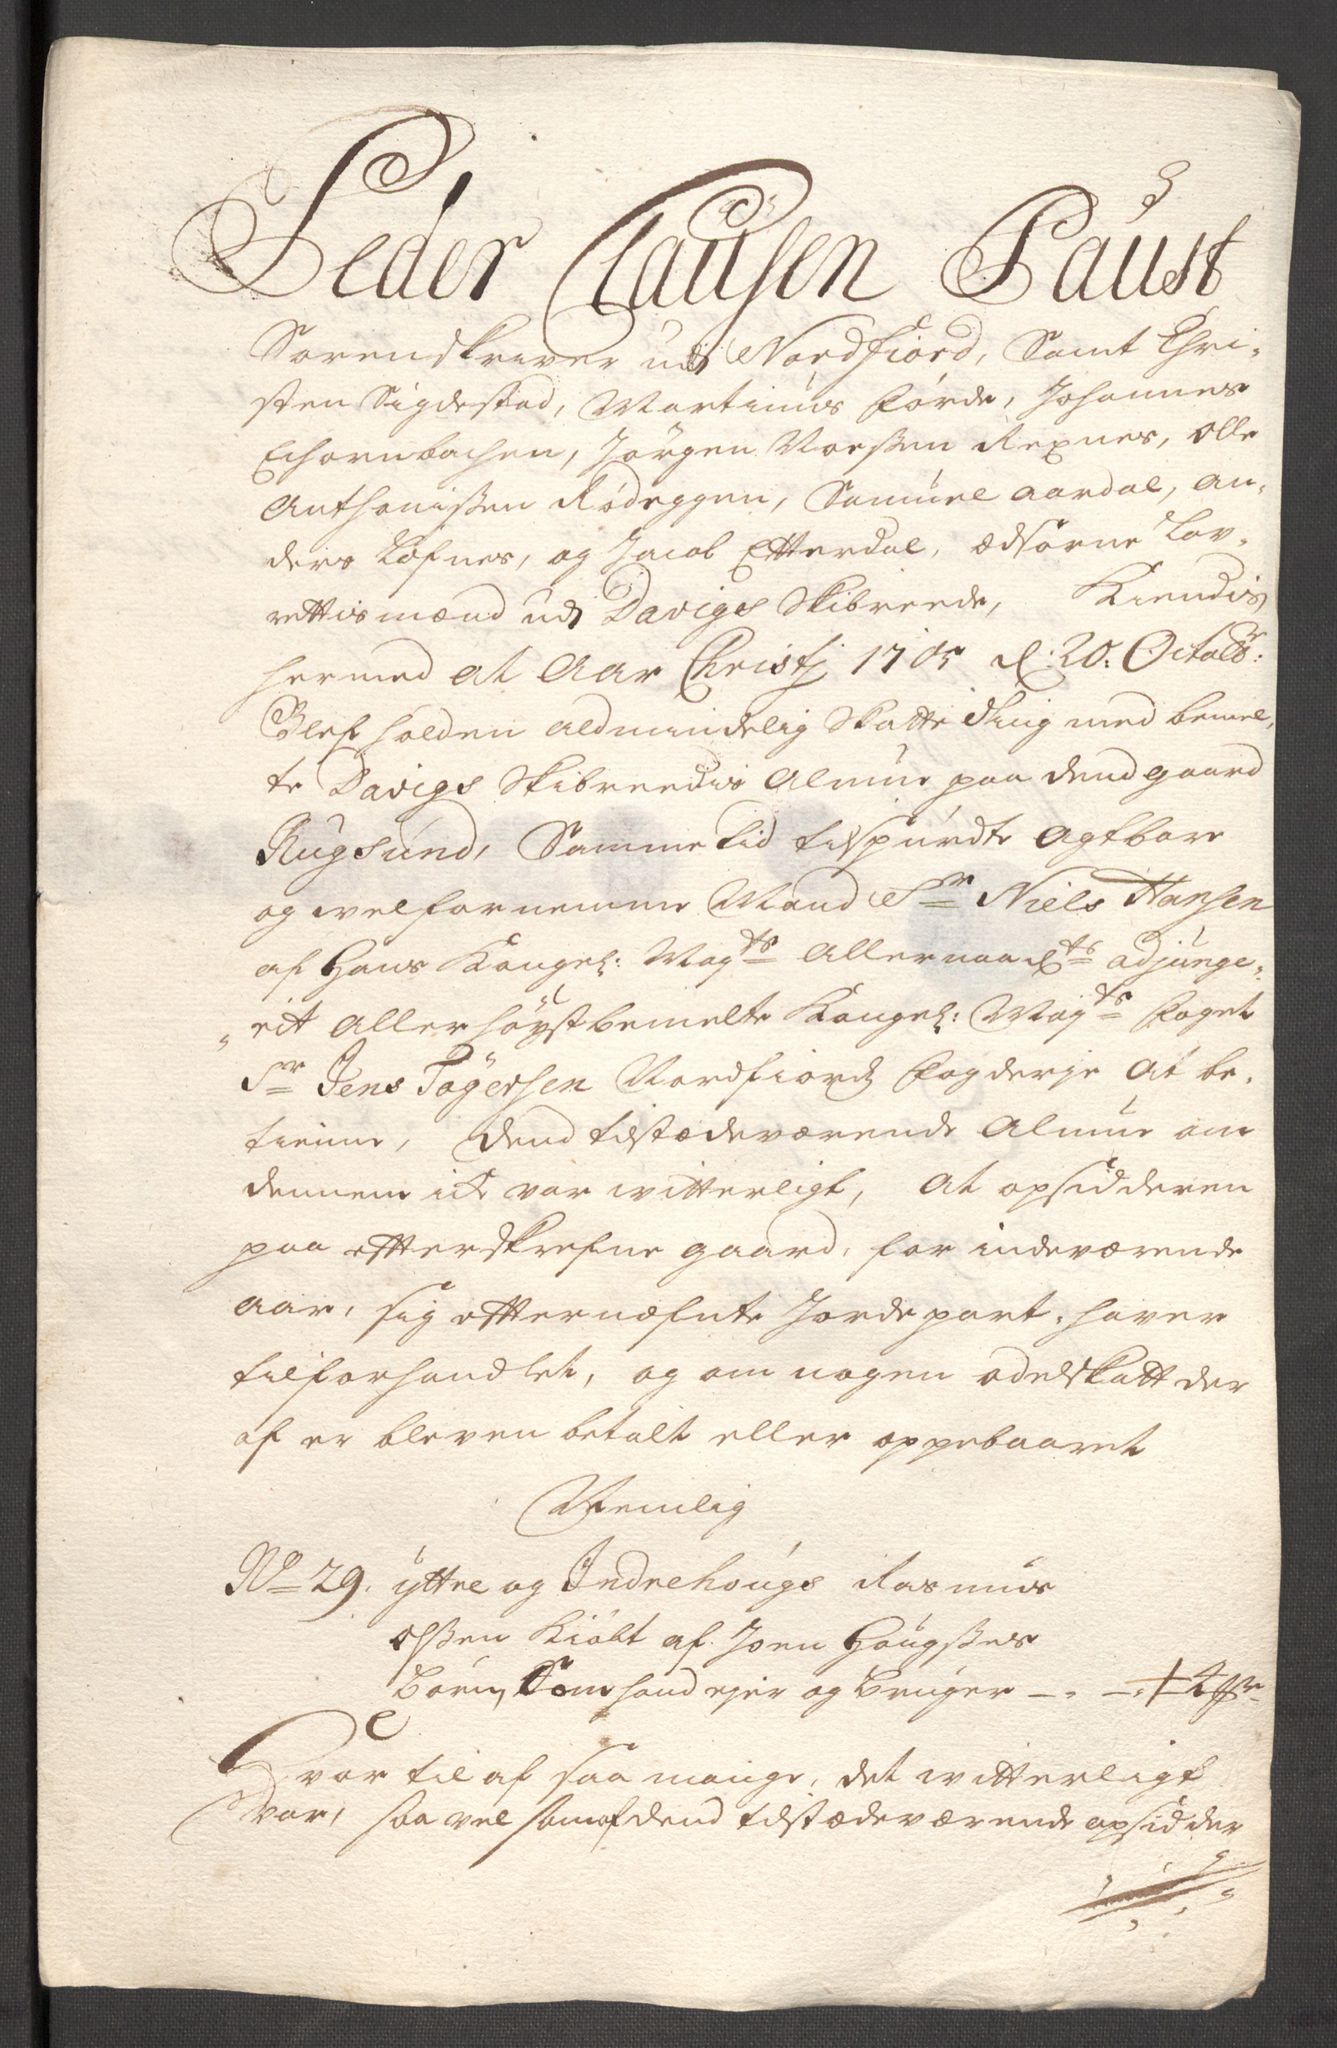 Peder Clausen Paust
Sorenskriver udj Nordfiord, Samt Chri-
sten Sigdestad, Martinus Förde, Johannes
Echornbachen, Jörgen Morsßen Rexnes, Olle
Anthonisßen Rödeggen, Samuel Aardal, An-
ders Löfnes, og Jacob Etterdal, ædsorne Lav-
rettismænd udj Davigs Skibreede, Kiendis
hermed at Aar Christj 1705 d: 20. Octobr:
Blef holden aldmindelig Skatte Ting med bemel-
te Davigs Skibreedis Almue paa dend gaard
Rugsund, Samme tid tilspurdte Agtbare
og velfornemme Mand Sr Niels Hansen
af Hans Kongel: Mayts Allernaadts adjunge-
rit Allerhöystbemelte Kongel: Mayts Foget
Sr Jens Tögersen Nordfiords Fogderje At be-
tienne, dend tilstædeværende Almue om
dennem ick var witterligt, At opsidderen
paa efterskrefne gaard, for indeværende
aar, sig efternæfnte Jordepart, haver
tilforhandlet, og om nogen odelskatt der
af er bleven betalt eller oppebaaret
Nemlig
No 29. ÿttre og Indrehougs Rasmus
Olsßen Kiöbt af Joen Hougsßes
börn, Som hand ejer og bruger
Hvor til af saa mange, det witterligt
var, saa vel som af dend tilstædeværende opsidder